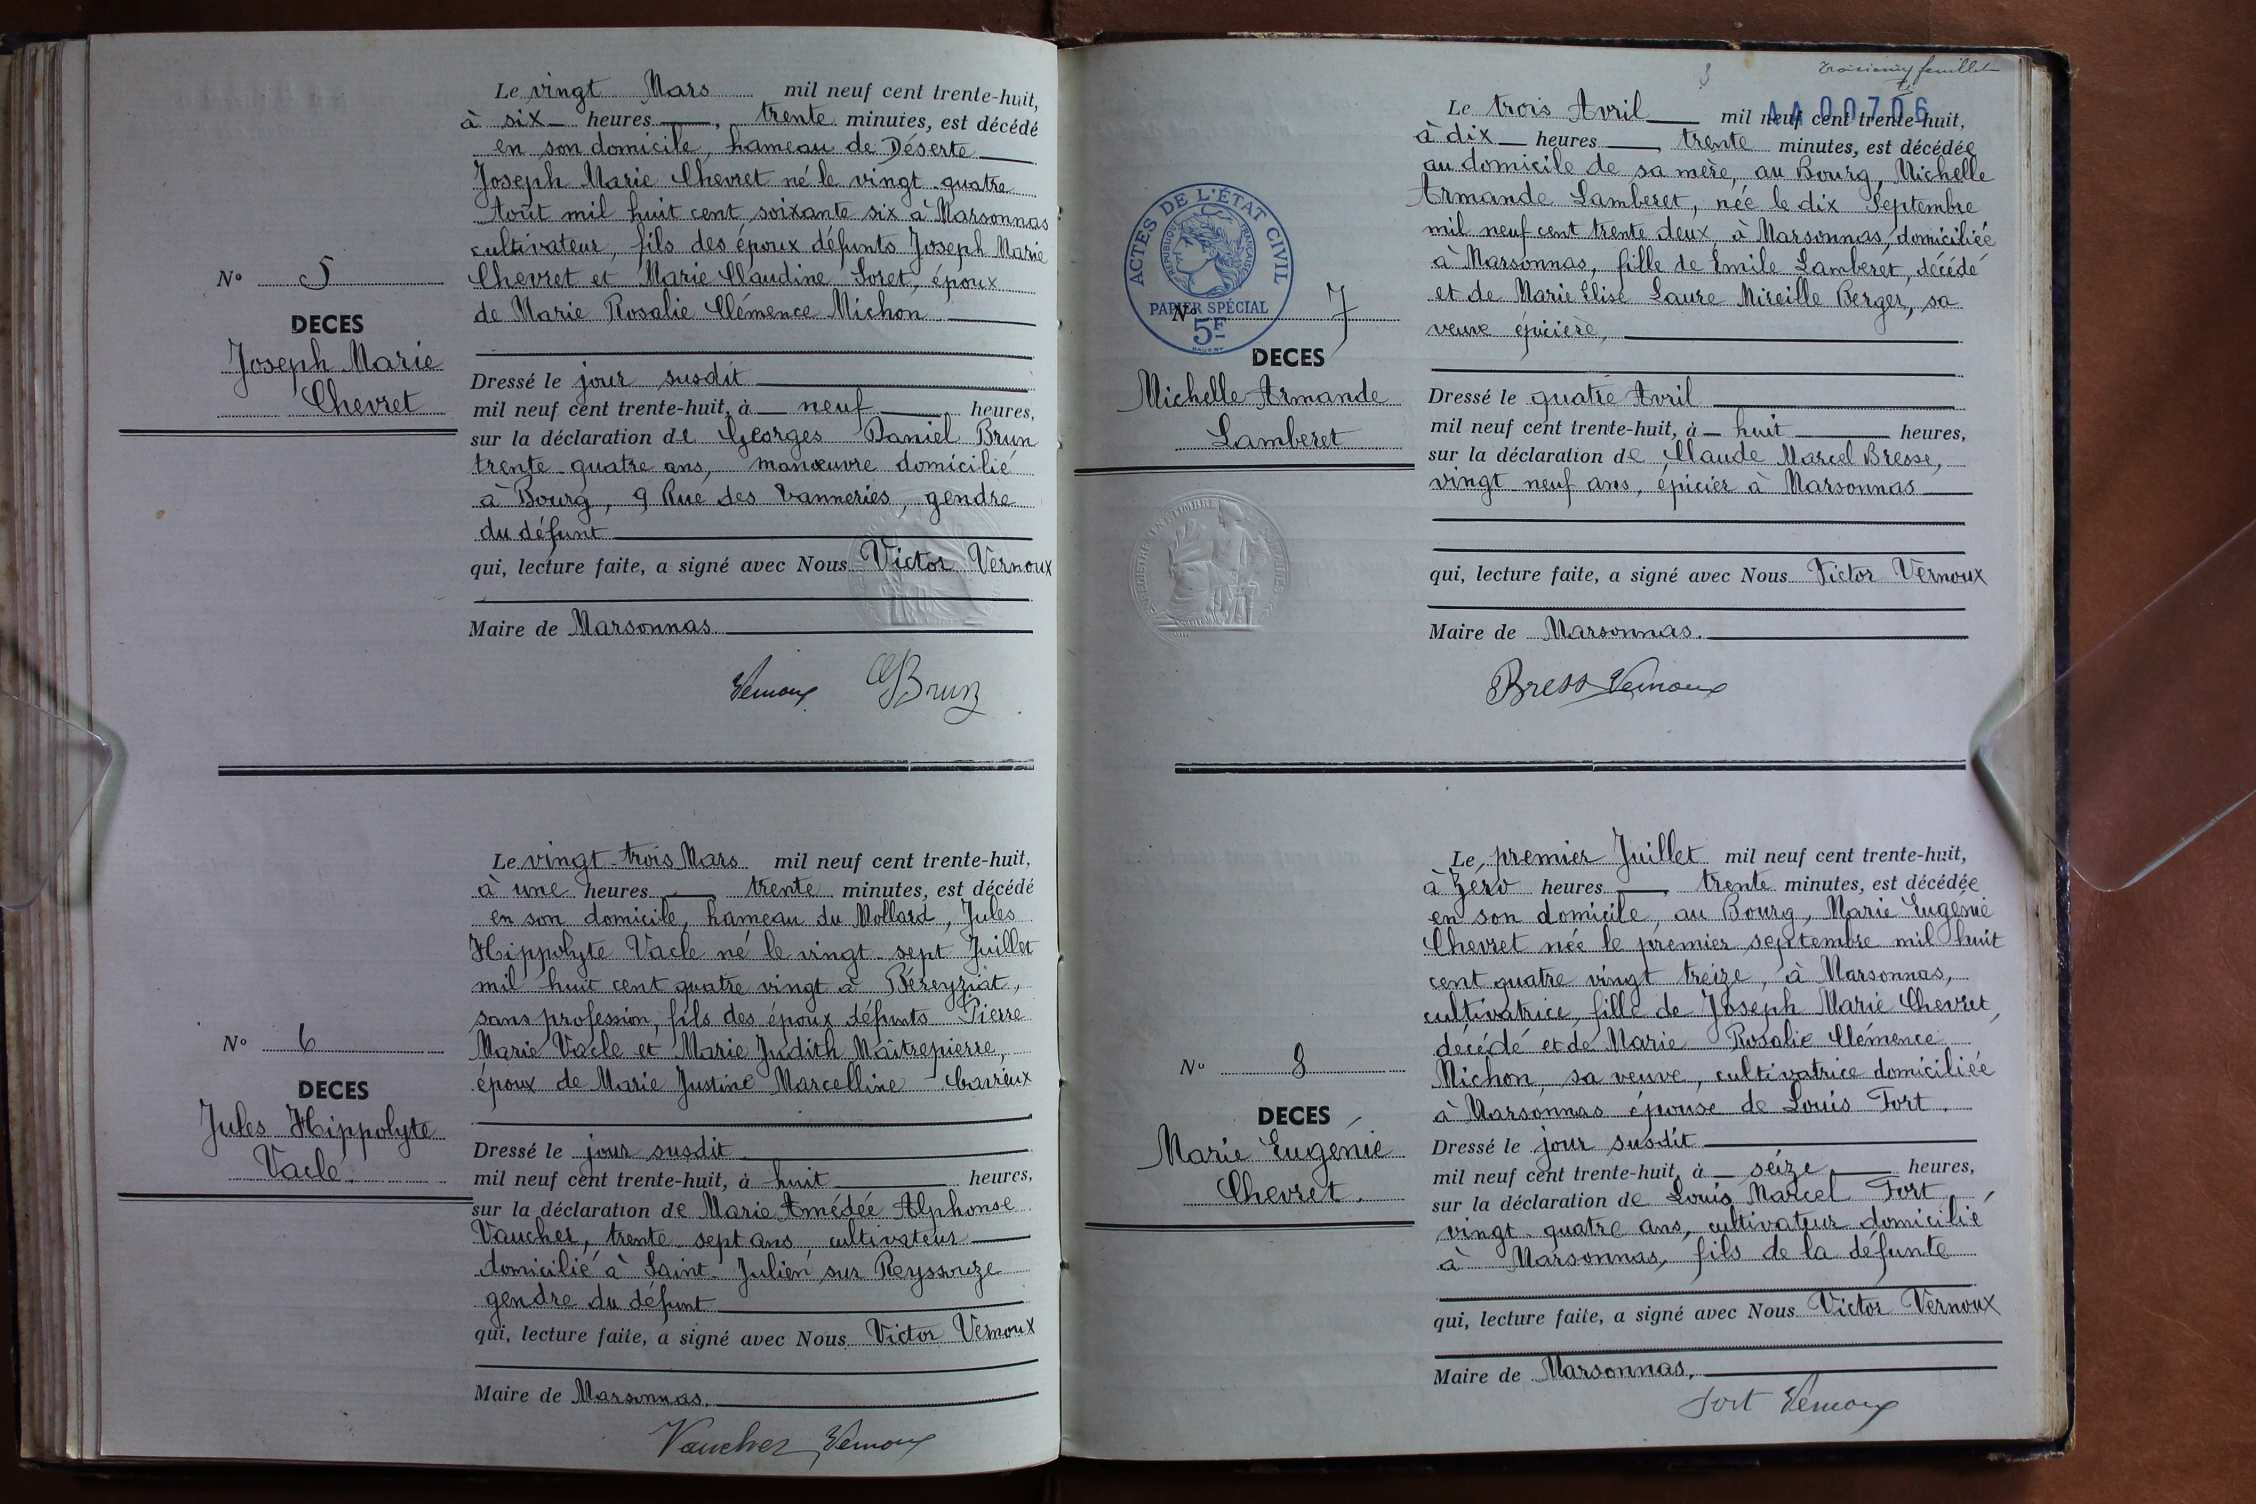 Le vingt Mars mil neuf cent trente-huit,
à six heures , trente minutes, est décédé
en son domicile, hameau de Déserte
Joseph Marie Chevret né le vingt-quatre
Août mil huit cent soixante six à Marsonnas
cultivateur, fils des époux défunts Joseph Marie
Chevret et Marie Claudine Loret, époux
de Marie Rosalie Clémence Michon
N° 5
DECES
Joseph Marie
Chevret
Dressé le jour susdit
mil neuf cent trente-huit, à neuf heures,
sur la déclaration de Georges Daniel Brun
trente-quatre ans, manœuvre domicilié
à Bourg, 9 Rue des Vanneries, gendre
du défunt
qui, lecture faite, a signé avec Nous Victor Vernoux
Maire de Marsonnas
Vernoux GBrun
Le vingt-trois Mars mil neuf cent trente-huit,
à une heures , trente minutes, est décédé
en son domicile, hameau du Mollard, Jules
Hippolyte Vacle né le vingt-sept Juillet
mil huit cent quatre vingt à Béreyziat,
sans profession, fils des époux défunts Pierre
Marie Vacle et Marie Judith Maîtrepierre,
époux de Marie Justine Marcelline Carreux
N° 6
DECES
Jules Hippolyte
Vacle.
Dressé le jour susdit
mil neuf cent trente-huit, à huit heures,
sur la déclaration de Marie Amédée Alphonse
Vaucher, trente-sept ans, cultivateur
domicilié à Saint-Julien sur Reyssouze
gendre du défunt
qui, lecture faite, a signé avec Nous Victor Vernoux
Maire de Marsonnas.
Vaucher Vernoux
3 troisième feuillet
AA 00706
Le trois Avril mil neuf cent trente-huit,
à dix heures , trente minutes, est décédée
au domicile de sa mère, au Bourg, Michelle
Armande Lamberet, née le dix Septembre
mil neuf cent trente deux à Marsonnas, domiciliée
à Marsonnas, fille de Emile Lamberet, décédé
et de Marie Elise Laure Mireille Berger, sa
veuve épicière,
ACTES DE L'ÉTAT CIVIL
RÉPUBLIQUE FRANÇAISE
PAPIER SPÉCIAL
5F
N° 7
DECES
Michelle Armande
Lamberet
Dressé le quatre Avril
mil neuf cent trente-huit, à huit heures,
sur la déclaration de Claude Marcel Bresse,
vingt-neuf ans, épicier à Marsonnas
qui, lecture faite, a signé avec Nous Victor Vernoux
Maire de Marsonnas.
Bresse Vernoux
Le premier Juillet mil neuf cent trente-huit,
à zéro heures , trente minutes, est décédée
en son domicile, au Bourg, Marie Eugénie
Chevret née le premier septembre mil huit
cent quatre vingt treize, à Marsonnas,
cultivatrice, fille de Joseph Marie Chevret,
décédé et de Marie Rosalie Clémence
Michon, sa veuve, cultivatrice domiciliée
à Marsonnas épouse de Louis Fort.
N° 8
DECES
Marie Eugénie
Chevret.
Dressé le jour susdit
mil neuf cent trente-huit, à seize heures,
sur la déclaration de Louis Marcel Fort,
vingt-quatre ans, cultivateur domicilié
à Marsonnas, fils de la défunte
qui, lecture faite, a signé avec Nous Victor Vernoux
Maire de Marsonnas.
Fort Vernoux